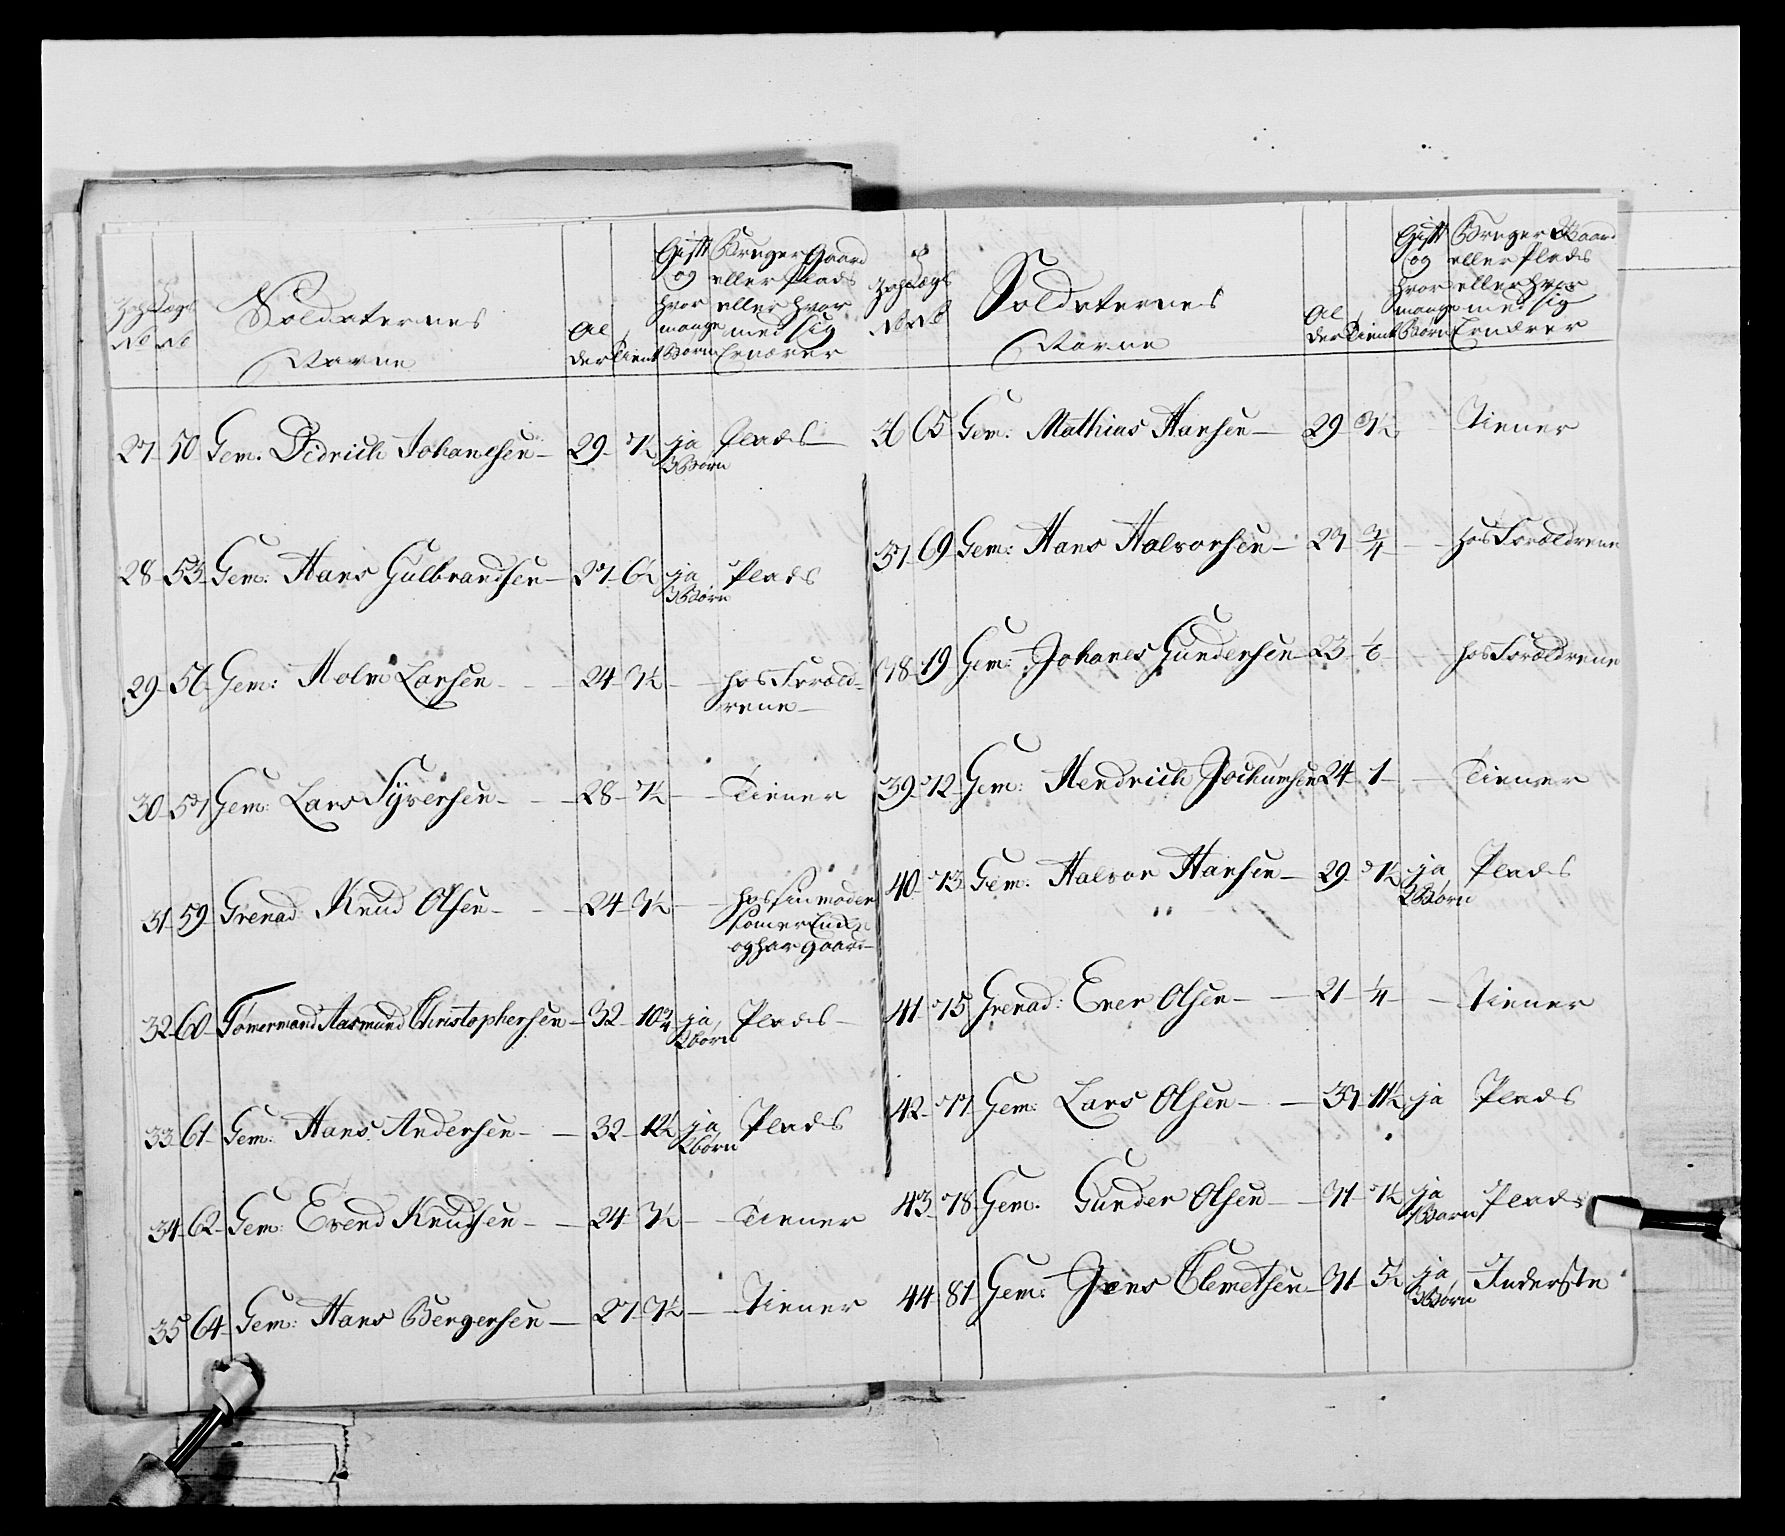 Lægs
No No
Soldaternes
Navne
Al
der
Tient
Gift
og
hvor
mange
Børn
Bruger Gaard
eller Plads
eller hvor
med sig
Ernærer
27 50 Gem. Didrich Johanesen 29 7½ ja Plads
3 Børn
28 53 Gem: Hans Gulbrandsen 27 6½ ja Plads
3 Børn
29 56 Gem: Holm Larsen 24 3½ hos Foræld-
rene
30 57 Gem: Lars Syversen 28 7½ Tiener
31 59 Grenad Knud Olsen 24 3½ hos sin moder
som er Enke
og har gaard
32 60 Tømermand Aasmund Christophersen 32 10¾ ja Plads
2 børn
33 61 Gem: Hans Andersen 32 12½ ja Plads
2 børn
34 62 Gem: Evend Knudsen 24 3½ Tiener
35 64 Gem: Hans Bergersen 27 3½ Tiener
Lægs
No No
Soldaternes
Navne
Al
der
Tient
Gift
og
hvor
mange
Børn
Bruger Gaard
eller Plads
eller hvor
med sig
Ernærer
36 65 Gem: Mathias Hansen 29 3½ Tiener
37 69 Gem: Hans Halvorsen 27 ¾ hos Forældrene
38 19 Gem: Johanes Gundersen 23 hos Forældrene
39 72 Gem: Hendrich Jochumsen 24 1 Tiener
40 73 Gem: Halvor Hansen 29 7½ ja Plads
2 Børn
41 75 Grenad: Even Olsen 21 ¼ Tiener
42 77 Gem: Lars Olsen 37 11½ ja Plads
43 78 Gem. Gunder Olsen 31 7½ ja Plads
1 Barn
44 81 Gem: Jens Clemetsen 31 5½ ja Inderste
3 Børn